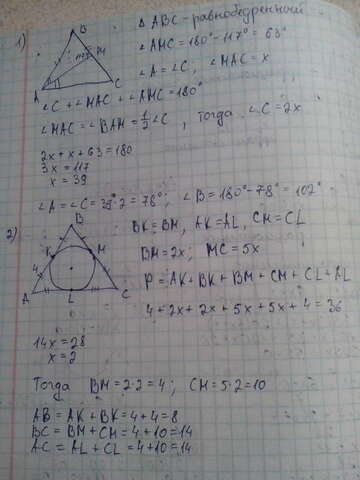 1)
B
117°
M
A
C
Δ ABC - равнобедренный
∠AMC = 180° - 117° = 63°
∠A = ∠C, ∠MAC = x
∠C + ∠MAC + ∠AMC = 180°
∠MAC = ∠BAM = 1/2 ∠C, тогда ∠C = 2x
2x + x + 63 = 180
3x = 117
x = 39
∠A = ∠C = 39° · 2 = 78°; ∠B = 180° - 78° = 102°
2)
B
K
M
4
A
L
C
BK = BM, AK = AL, CM = CL
BM = 2x; MC = 5x
P = AK + BK + BM + CM + CL + AL
4 + 2x + 2x + 5x + 5x + 4 = 36
14x = 28
x = 2
Тогда BM = 2·2 = 4; CM = 5·2 = 10
AB = AK + BK = 4 + 4 = 8
BC = BM + CM = 4 + 10 = 14
AC = AL + CL = 4 + 10 = 14